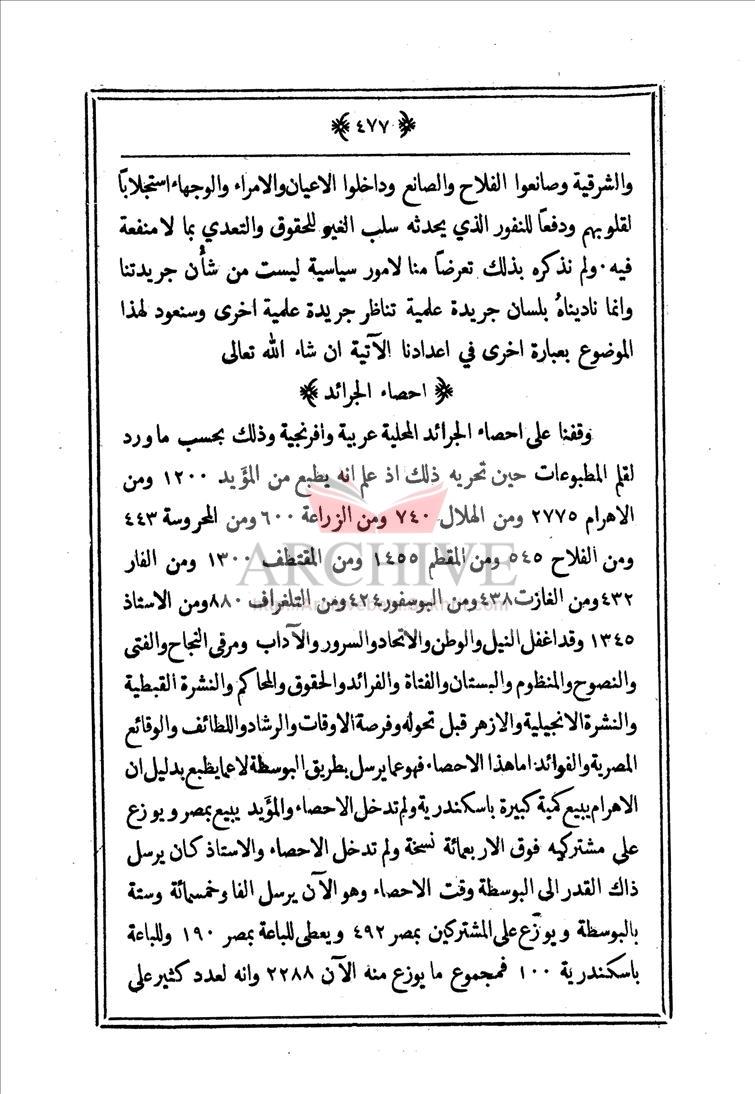 ٤٧٧
والشرقية وصانعوا الفلاح والصانع وداخلوا الاعيان والامراء والوجهاء استجلاباً
لقلوبهم ودفعاً للنفور الذي يحدثه سلب الغير للحقوق والتعدي بما لا منفعة
فيه. ولم نذكره بذلك تعرضاً منا لامور سياسية ليست من شأن جريدتنا
وانما ناديناهُ بلسان جريدة علمية تناظر جريدة علمية اخرى وسنعود لهذا
الموضوع بعبارة اخرى في اعدادنا الآتية ان شاء الله تعالى
احصاء الجرائد
وقفنا على احصاء الجرائد المحلية عربية وافرنجية وذلك بحسب ما ورد
لقلم المطبوعات حين تحريه ذلك اذ علم انه يطبع من المؤيد ١٢٠٠ ومن
الاهرام ٢٧٧٥ ومن الهلال ٧٤٠ ومن الزراعة ٦٠٠ ومن المحروسة ٤٤٣
ومن الفلاح ٥٤٥ ومن المقطم ١٤٥٥ ومن المقتطف ١٣٠٠ ومن الفار
٤٣٢ ومن الغازت ٤٣٨ ومن البوسفور ٤٢٤ ومن التلغراف ٨٨٠ ومن الاستاذ
١٣٤٥ وقد اغفل النيل والوطن والاتحاد والسرور والآداب ومرقى النجاح والفتى
والنصوح والمنظوم والبستان والفتاة والفرائد والحقوق والمحاكم والنشرة القبطية
والنشرة الانجيلية والازهر قبل تحوله وفرصة الاوقات والرشاد واللطائف والوقائع
المصرية والفوائد اما هذا الاحصاء فهو عما يرسل بطريق البوسطة لا عما يطبع بدليل ان
الاهرام يبيع كمية كبيرة باسكندرية ولم تدخل الاحصاء والمؤيد يبيع بمصر ويوزع
على مشتركيه فوق الاربعمائة نسخة ولم تدخل الاحصاء والاستاذ كان يرسل
ذاك القدر الى البوسطة وقت الاحصاء وهو الآن يرسل الفا وخمسمائة وستة
بالبوسطة ويوزّع على المشتركين بمصر ٤٩٢ ويعطى للباعة بمصر ١٩٠ وللباعة
باسكندرية ١٠٠ فمجموع ما يوزع منه الآن ٢٢٨٨ وانه لعدد كثير على
ARCHIVE